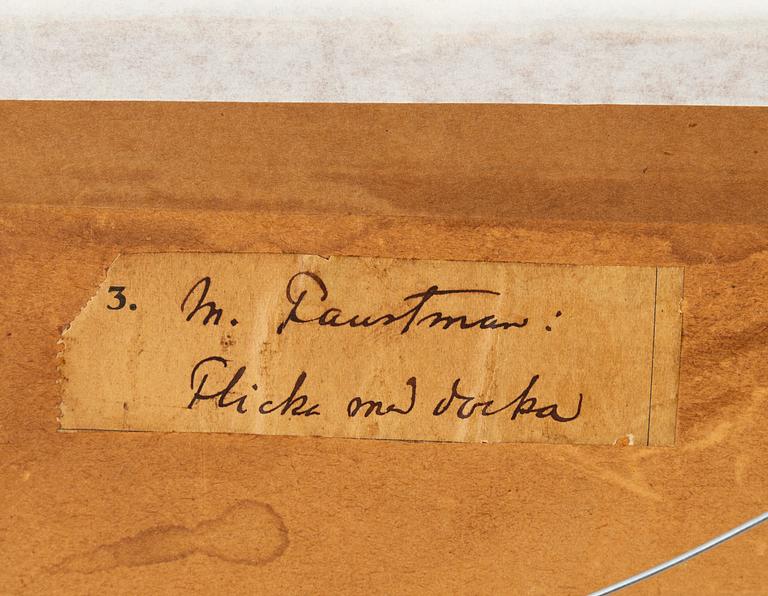 3. M. Faustman:
Flicka med docka